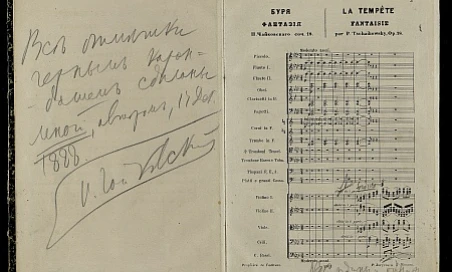 Всѣ отмѣтки
чернымъ каран-
дашемъ сдѣланы
мной, авторомъ,
1888
П. Чайковскій
БУРЯ
ФАНТАЗІЯ
П. Чайковскаго соч. 18.
LA TEMPÊTE
FANTAISIE
par P. Tschaikowsky, Op. 18.
Moderato assai.
Piccolo.
Flauto I.
Flauto II.
Oboi.
Clarinetti in B.
Fagotti.
Corni in F.
Trombe in F.
2 Tromboni Tenori.
Trombone Basso e Tuba.
Timpani
Piatti e grand Cassa.
Violino I.
Violino II.
Viole.
Celli.
C. Bassi.
Moderato assai.